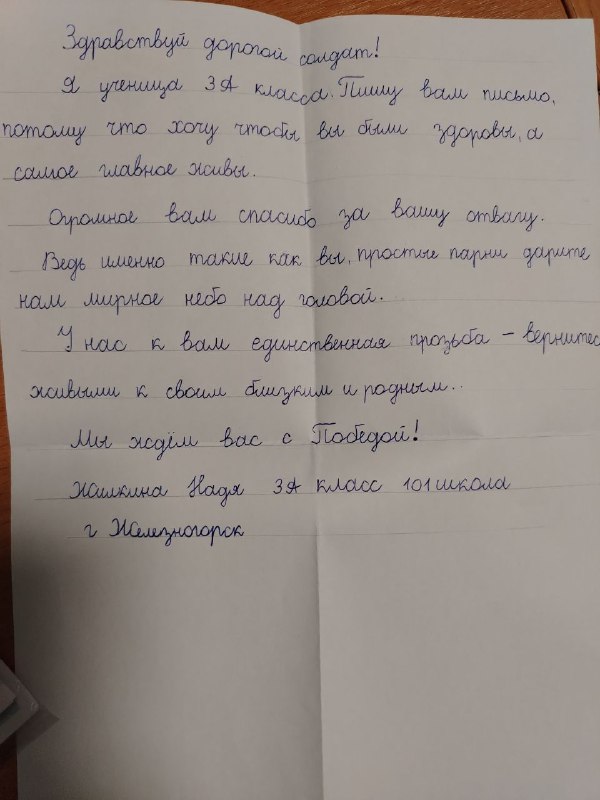 Здравствуй дорогой солдат!
Я ученица 3А класса. Пишу вам письмо,
потому что хочу чтобы вы были здоровы, а
самое главное живы.
Огромное вам спасибо за вашу отвагу.
Ведь именно такие как вы, простые парни дарите
нам мирное небо над головой.
У нас к вам единственная прозьба – вернитес
живыми к своим близким и родным..
Мы ждём вас с Победой!
Жилкина Надя 3А класс 101 школа
г Железногорск